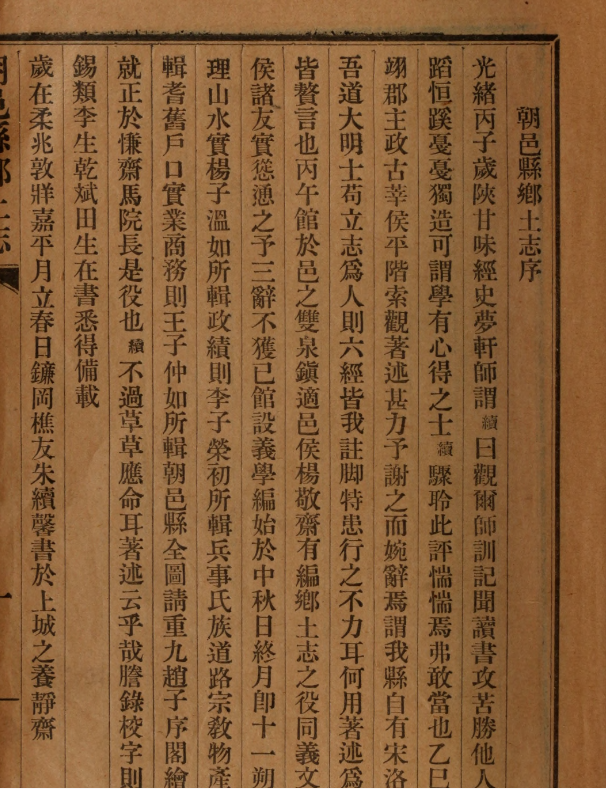 朝邑縣鄉土志序
光緒丙子歲陝甘味經史夢軒師謂續曰觀爾師訓記聞讀書攻苦勝他人
蹈恒蹊憂憂獨造可謂學有心得之士續驟聆此評惴惴焉弗敢當也乙巳
翊郡主政古莘侯平階索觀著述甚力予謝之而婉辭焉謂我縣自有宋洛
吾道大明士苟立志爲人則六經皆我註脚特患行之不力耳何用著述爲
皆贅言也丙午館於邑之雙泉鎭適邑侯楊敬齋有編鄉土志之役同義文
侯諸友實慫慂之予三辭不獲已館設義學編始於中秋日終月卽十一朔
理山水實楊子溫如所輯政績則李子榮初所輯兵事氏族道路宗教物產
輯耆舊戶口實業商務則王子仲如所輯朝邑縣全圖請重九趙子序閣繪
就正於慊齋馬院長是役也續不過草草應命耳著述云乎哉謄錄校字則
錫類李生乾斌田生在書悉得備載
歲在柔兆敦牂嘉平月立春日鐮岡樵友朱續馨書於上城之養靜齋
朝邑縣鄉土志